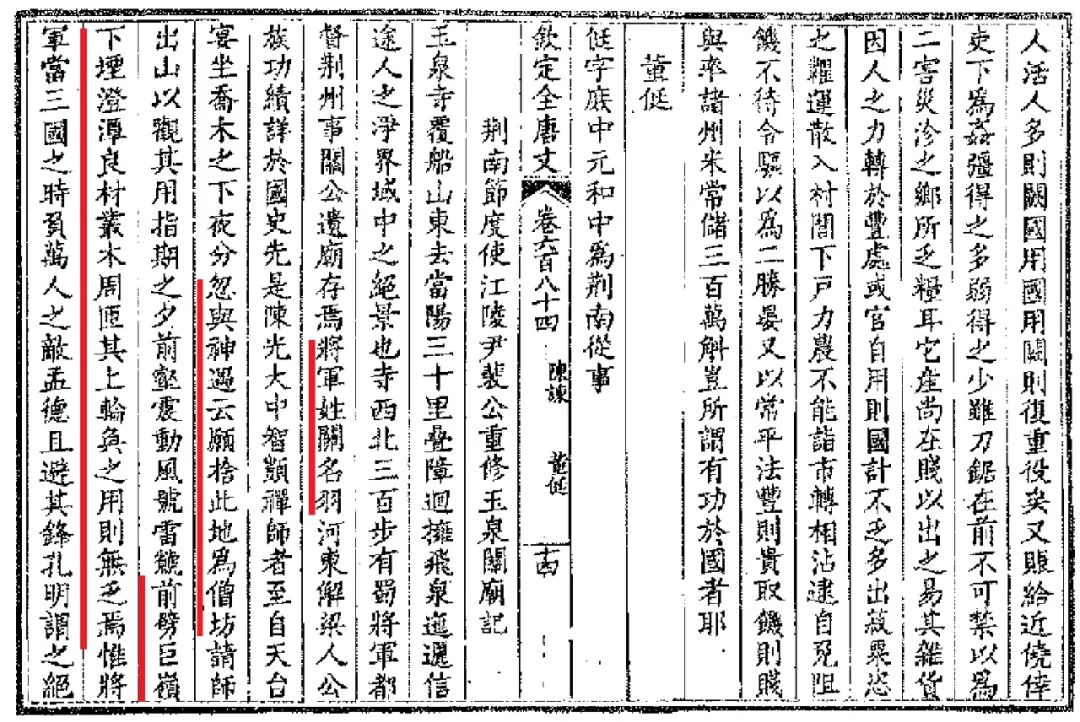 人活人多則闕國用國用闕則復重役矣又賑給近僥倖
吏下為姦彊得之多弱得之少雖刀鋸在前不可禁以為
二害災沴之鄉所乏糧耳它產尚在賤以出之易其雜貨
因人之力轉於豐處或官自用則國計不乏多出菽粟恣
之糶運散入村閭下戶力農不能詣市轉相沾逮自免阻
饑不待令驅以為二勝晏又以常平法豐則貴取饑則賤
與率諸州米常儲三百萬斛豈所謂有功於國者耶
董侹
侹字庶中元和中為荆南從事
欽定全唐文 卷六百八十四 陳諫 董侹 十四
荆南節度使江陵尹裴公重修玉泉關廟記
玉泉寺覆船山東去當陽三十里疊障迴擁飛泉迤邐信
途人之淨界域中之絕景也寺西北三百步有蜀將軍都
督荆州事關公遺廟存焉將軍姓關名羽河東解梁人公
族功績詳於國史先是陳光大中智顗禪師者至自天台
宴坐喬木之下夜分忽與神遇云願捨此地為僧坊請師
出山以觀其用指期之夕前壑震動風號雷虩前劈巨嶺
下堙澄潭良材叢木周匝其上輪奐之用則無乏焉惟將
軍當三國之時負萬人之敵孟德且避其鋒孔明謂之絕